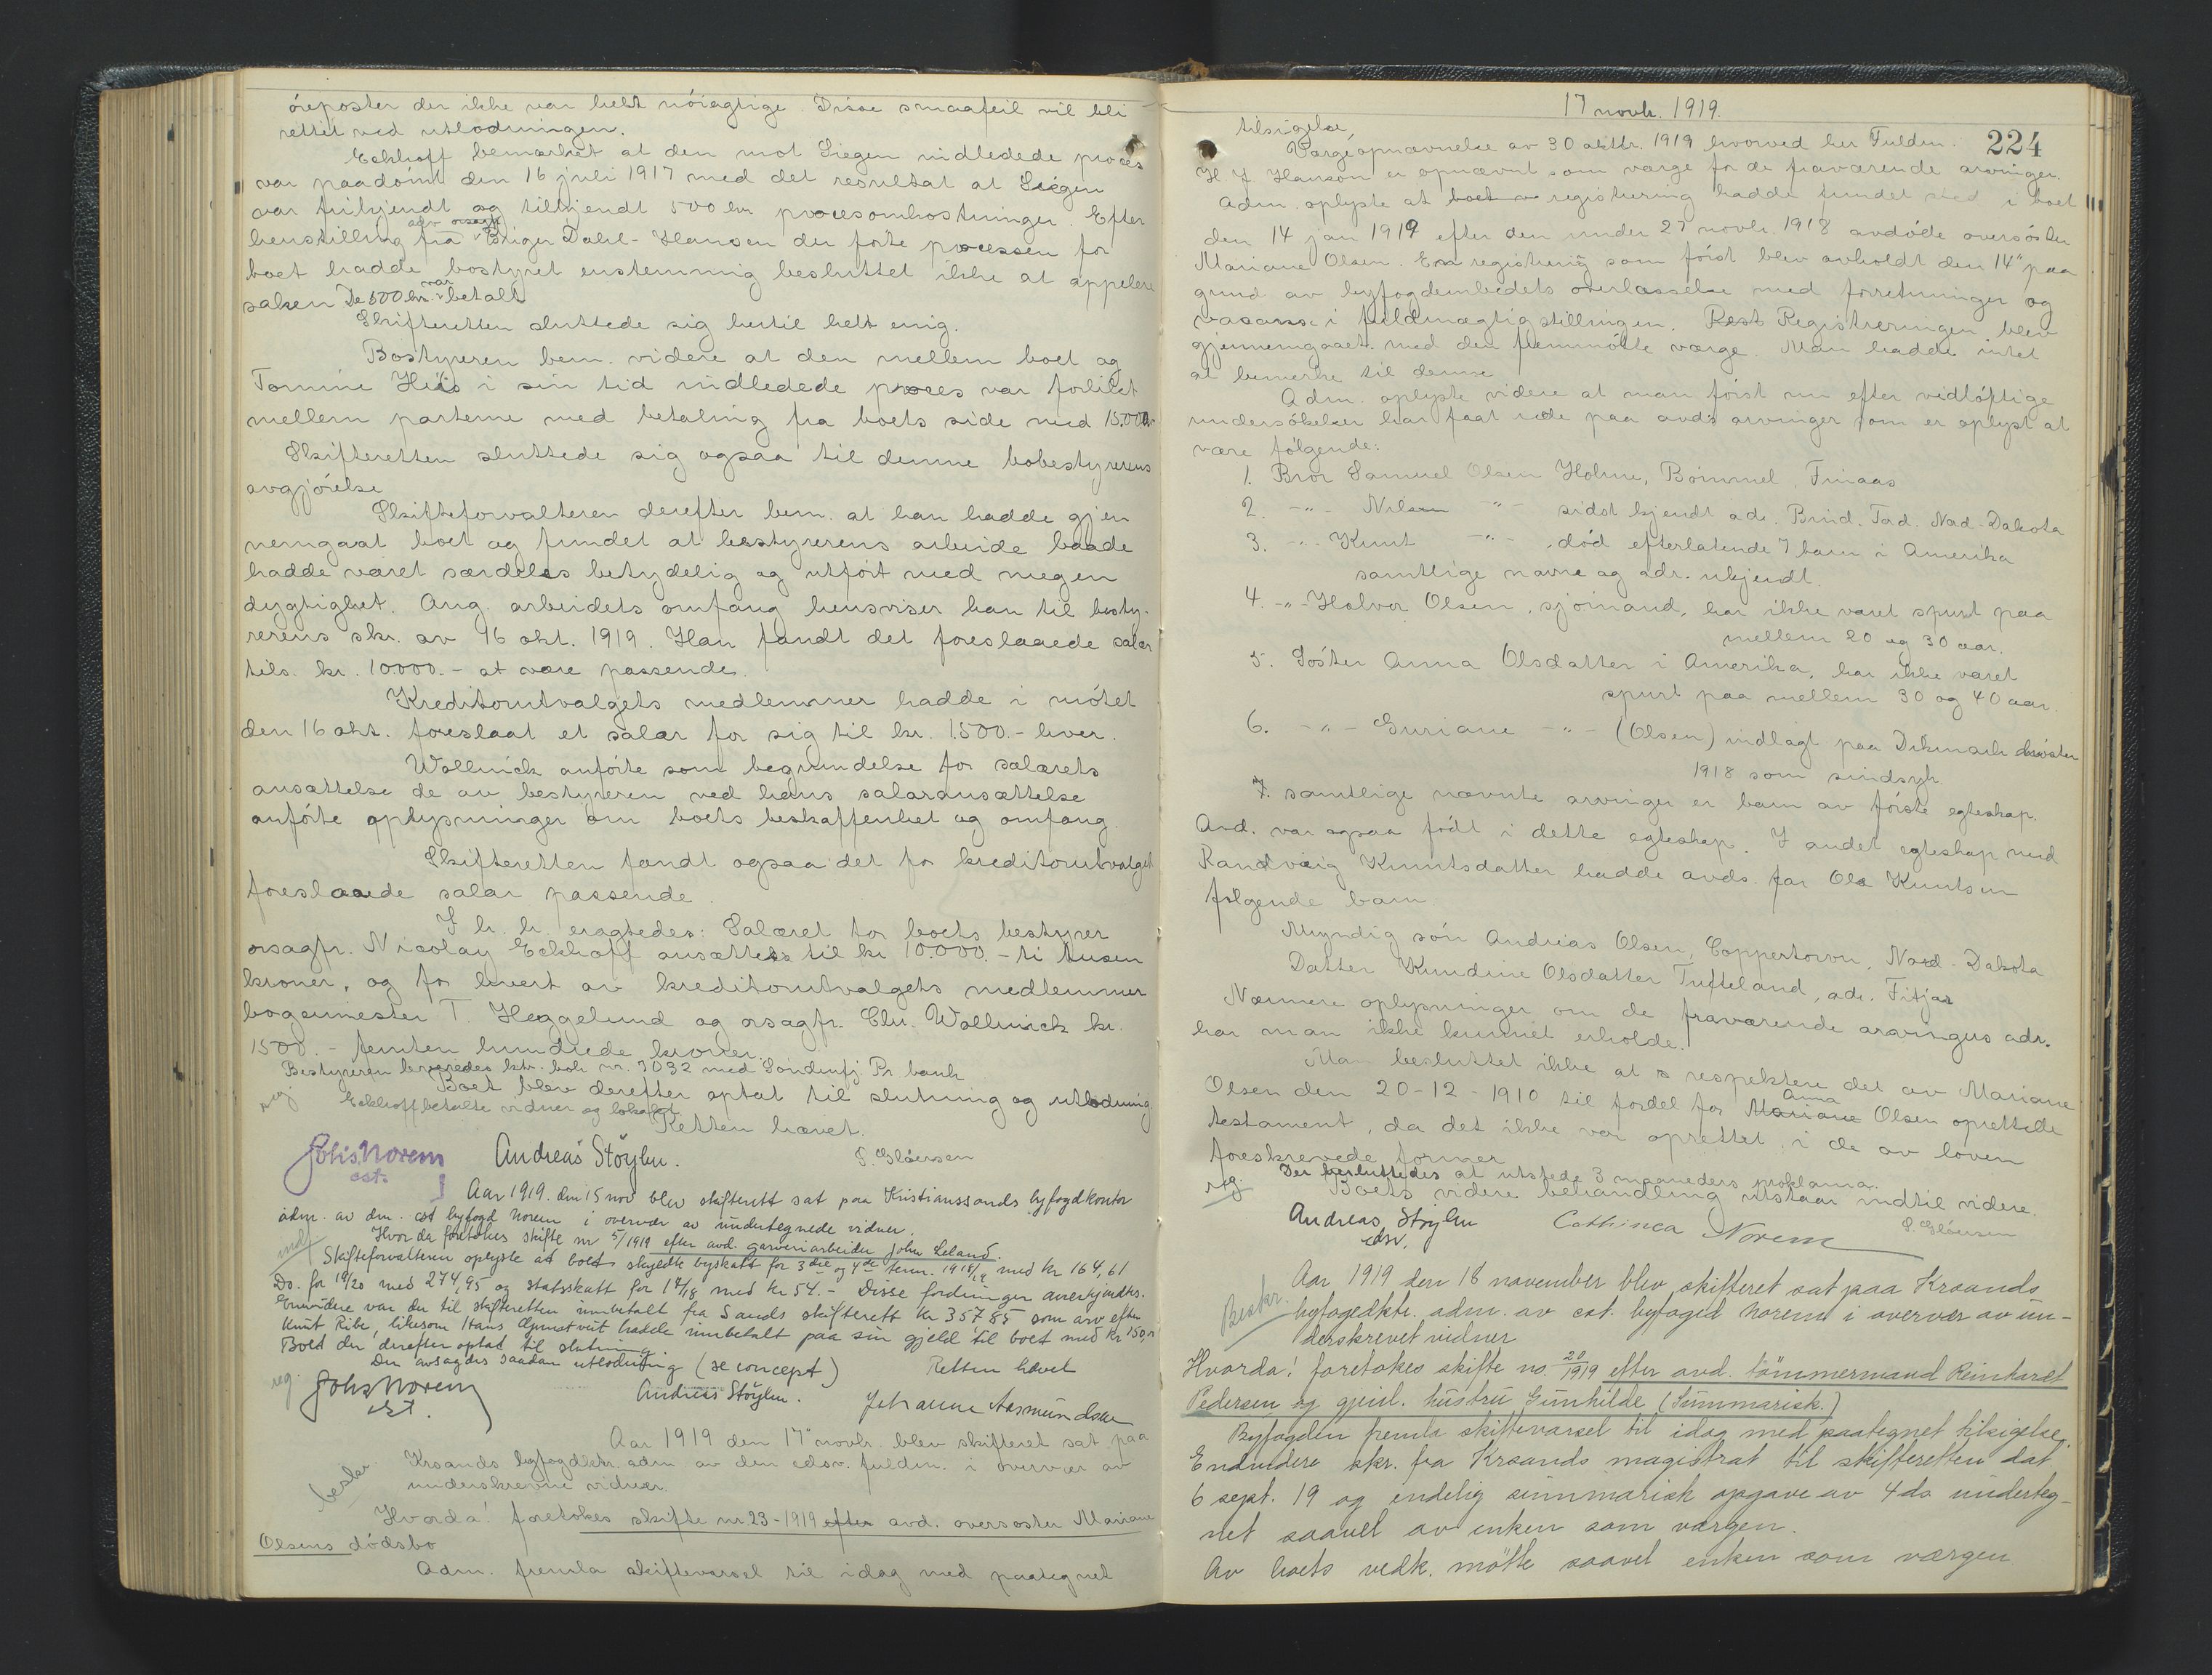 øreposter der ikke var helt nøiagtige. Disse smaafeil vil bli
rettet ved utlodningen.
Eckhoff bemærket at den mot Siegen indledede proces
var paadømt den 16 juli 1917 med det resultat at Siegen
var frikjendt og tilkjendt 500 kr procesomkostninger. Efter
henstilling fra adv. orsagfr. Birger Dahl-Hansen der førte processen for
boet hadde bostyret enstemmig besluttet ikke at appelere
saken De 500 kr. var betalt
Skifteretten sluttede sig hertil helt enig.
Bostyreren bem. videre at den mellem boet og
Tomine Hiis i sin tid indledede proces var forlikt
mellem parterne med betaling fra boets side med 15.000
Skifteretten sluttede sig ogsaa til denne bobestyrerens
avgjørelse
Skifteforvalteren derefter bem. at han hadde gjen
nemgaat boet og fundet at bestyrerens arbeide baade
hadde været særdeles betydelig og utført med megen
dygtighet. Ang. arbeidets omfang henviser han til besty-
rerens skr. av 16 okt. 1919. Han fandt det foreslaaede salær
tils. kr. 10000.- at være passende.
Kreditorutvalgets medlemmer hadde i møtet
den 16 okt. foreslaat et salær for sig til kr. 1.500.- hver.
Wallnick anførte som begrundelse for salærets
ansættelse de av bestyreren ved hans salæransættelse
anførte oplysninger om boets beskaffenhet og omfang.
Skifteretten fandt ogsaa det for kreditorutvalget
foreslaaede salær passende.
I h. h. eragtedes: Salæret for boets bestyrer
orsagfr. Nicolay Eckhoff ansættes til kr 10.000.- ti tusen
kroner, og for hvert av kreditorutvalgets medlemmer
bagermester T. Heggelund og orsagfr. Chr. Wallnick kr.
1500.- femten hundrede kroner.
Bestyreren leveredes ktr. bok nr. 3032 med Søndenfj. Pr. bank
Boet blev derefter optat til slutning og utlodning.
reg Eckhoff betalte vidner og lokalet
Retten hævet.
Johs Norem
cst.
Andreas Støylen.
Aar 1919. den 15 nov blev skifterett sat paa Kristianssands byfogdkontor
adm. av den cst byfogd Norem i overvær av undertegnede vidner.
Hvorda foretokes skifte nr 5/1919 efter avd. garveriarbeider John Leland.
Skifteforvalteren oplyste at boets skyldte byskatt for 3die og 4de term. 1918/19 med kr 164,61
Do. for 19/20 med 274,95 og statsskatt for 17/18 med kr 54.- Disse fordringer anerkjendtes.
Enuvidere var der til skifteretten innbetalt fra Sands skifterett kr 357 85 som arv efter
Knut Ribe, likesom Hans hadde innbetalt paa sin gjeld til boet med kr 150,-
Boet der derefter optat til slutning.
Der avsagdes saadan utlodning (se concept) Retten hævet
reg. Johs Norem
cst.
Andreas Støylen.
Johanne Aasmundsen
Aar 1919 den 17" novbr. blev skifteret sat paa
Krsands byfogdktr. adm av den edsv. fuldm. i overvær av
underskrevne vidner.
Hvorda! foretokes skifte nr. 23-1919 efter avd. oversøster Mariane
Olsens dødsbo
Adm. fremla skiftevarsel til idag med paategnet
17 novbr. 1919.
224
tilsigelse,
Vergeopnævnelse av 30 oktbr. 1919 hvorved hr. Fuldm.
H J Hanson er opnævnt som verge for de fraværende arvinger.
Adm. oplyste at registrering hadde fundet sted i boet
den 14 jan 1919 efter den under 27 novbr. 1918 avdøde oversøster
Mariane Olsen. En registrering som først blev avholdt den 14" paa
grund av byfogdembedets overlæsselse med forretninger og
vacanse i fuldmægtigstillingen. Registreringen blev
gjennemgaaet med den fremmøtte værge Man hadde intet
at bemerke til denne
Adm. oplyste videre at man først nu efter vidløftige
undersøkelser har faat rede paa avd's arvinger som er oplyst at
være følgende:
1. Bror Samuel Olsen Holme, Bømmel, Finaas
2. -"- Nilsen -"- sidst kjendt adr. Brind. Tad. Nad-Dakota
3. -"- Knut -"- , død efterlatende 7 barn i Amerika
samtlige navne og adr. ukjendt.
4. -"- Halvor Olsen, sjømand, har ikke været spurt paa
mellem 20 og 30 aar.
5. Søster Anna Olsdatter i Amerika, har ikke været
spurt paa mellem 30 og 40 aar.
6. -"- Guriane -"- (Olsen) indlagt paa Dikemark
1918 som sindsyk.
7. samtlige nævnte arvinger er barn av første egteskap.
Avd. var ogsaa født i dette egteskap. I andet egteskap med
Randveig Knutsdatter hadde avds. far Ola Knutsen
følgende barn.
Myndig søn Andreas Olsen, Coppertown, Nord-Dakota
Datter Kundine Olsdatter Tufteland, adr. Fitjar
Nærmere oplysninger om de fraværende arvingers adr.
har man ikke kunnet erholde.
Man besluttet ikke at respektere det av Mariane
Olsen den 20-12-1910 til fordel for Mariane Anna Olsen oprettede
testament, da det ikke var oprettet i de av loven
foreskrevede former
Der besluttedes at utstede 3 maaneders proklama.
reg. Boets videre behandling utstaar indtil videre.
Andreas Støylen
edsv.
Cathinca Norem
Aar 1919 den 18 november blev skifteret sat paa Krsands
Beskr. byfogedktr. adm. av cst. byfoged Norem i overvær av un-
derskrevet vidner
Hvorda! foretokes skifte no. 20/1919 efter avd. tömmermand Reinhardt
Pedersen og gjenl. hustru Gunhilde (Summarisk.)
Byfogden fremla skiftevarsel til idag med paategnet tilsigelse.
Endvidere skr. fra Krsands magistrat til skifteretten dat.
6 sept. 19 og endelig summarisk opgave av 4 ds underteg-
net saavel av enken som værgen.
Av boets vedk. mötte saavel enken som værgen